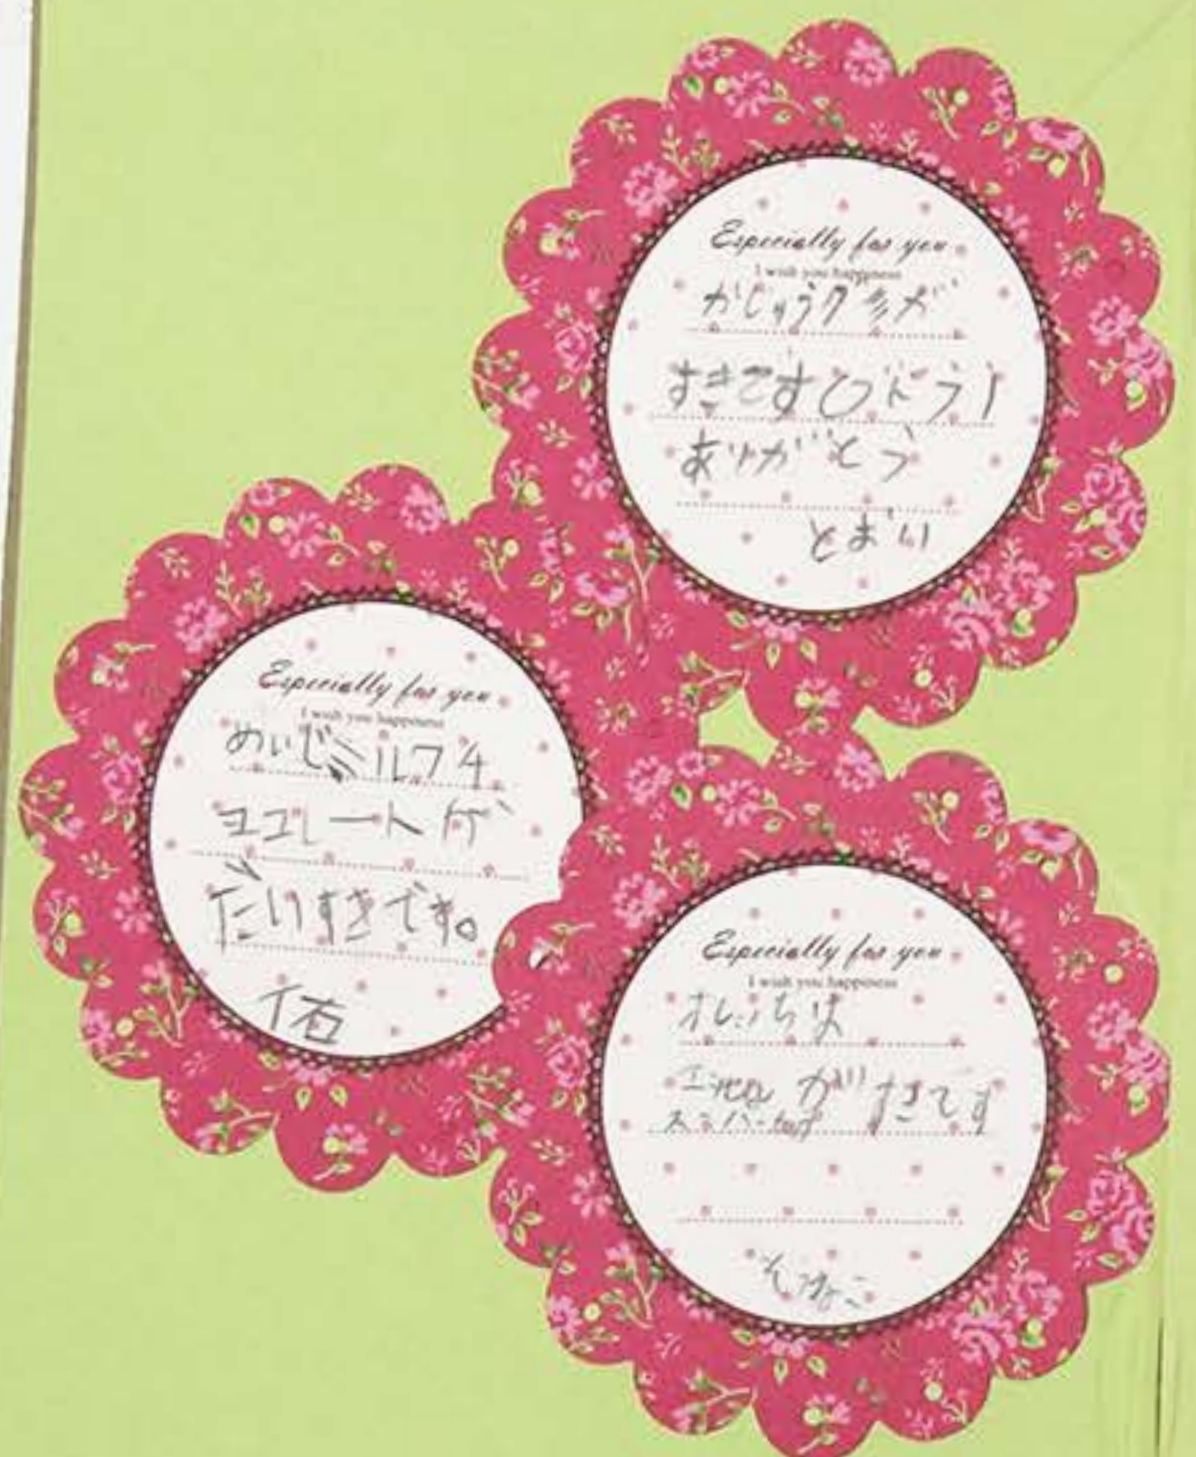 Especially for you
I wish you happiness
かじゅうグミが
すきですぶどう!
ありがとう
とおい
Especially for you
I wish you happiness
めいじミルクチ
ョコレートが
だいすきです。
佑
Especially for you
I wish you happiness
オレっちは
がすきです
スーパーカップ